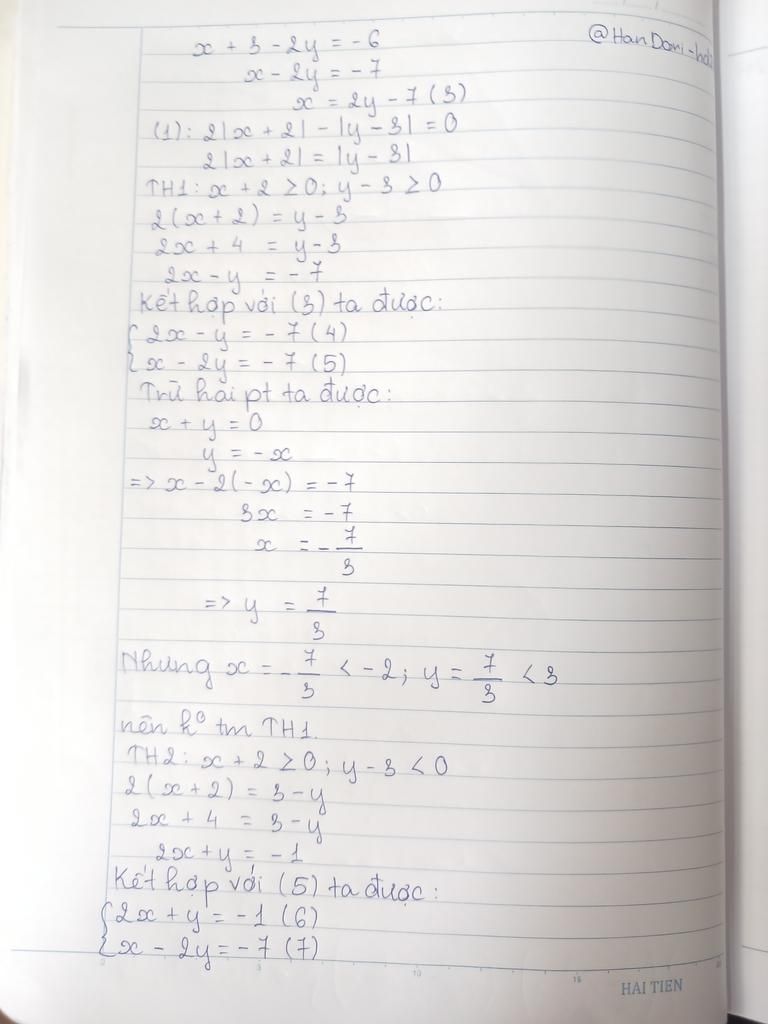 @HanDami-hdi
x + 3 - 2y = -6
x - 2y = -7
x = 2y - 7 (3)
(1): 2|x + 2| - |y - 3| = 0
2|x + 2| = |y - 3|
TH1: x + 2 ≥ 0; y - 3 ≥ 0
2(x + 2) = y - 3
2x + 4 = y - 3
2x - y = -7
Kết hợp với (3) ta được:
{ 2x - y = -7 (4)
x - 2y = -7 (5)
Trừ hai pt ta được:
x + y = 0
y = -x
=> x - 2(-x) = -7
3x = -7
x = -7/3
=> y = 7/3
Nhưng x = -7/3 < -2; y = 7/3 < 3
nên k° tm TH1.
TH2: x + 2 ≥ 0; y - 3 < 0
2(x + 2) = 3 - y
2x + 4 = 3 - y
2x + y = -1
Kết hợp với (5) ta được:
{ 2x + y = -1 (6)
x - 2y = -7 (7)
0 5 10 15
HAI TIEN